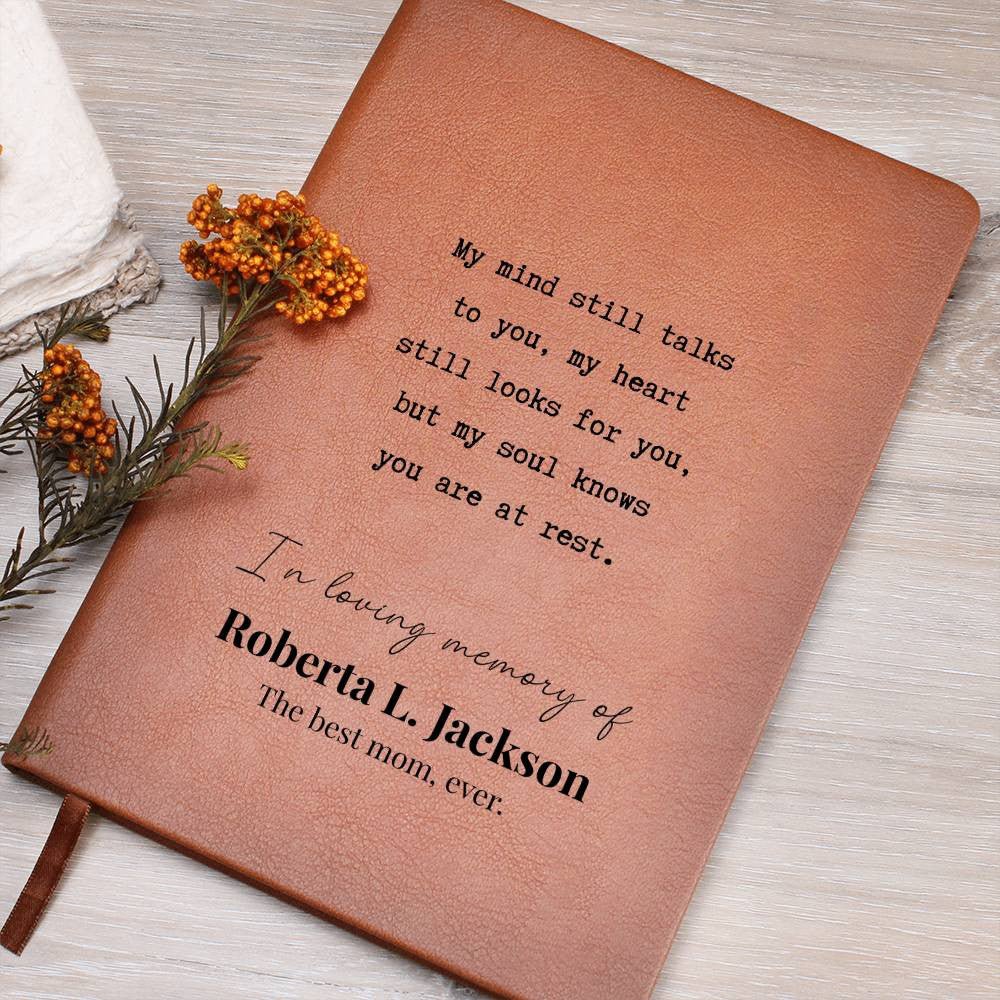 My mind still talks
to you, my heart
still looks for you,
but my soul knows
you are at rest.
In loving memory of
Roberta L. Jackson
The best mom, ever.